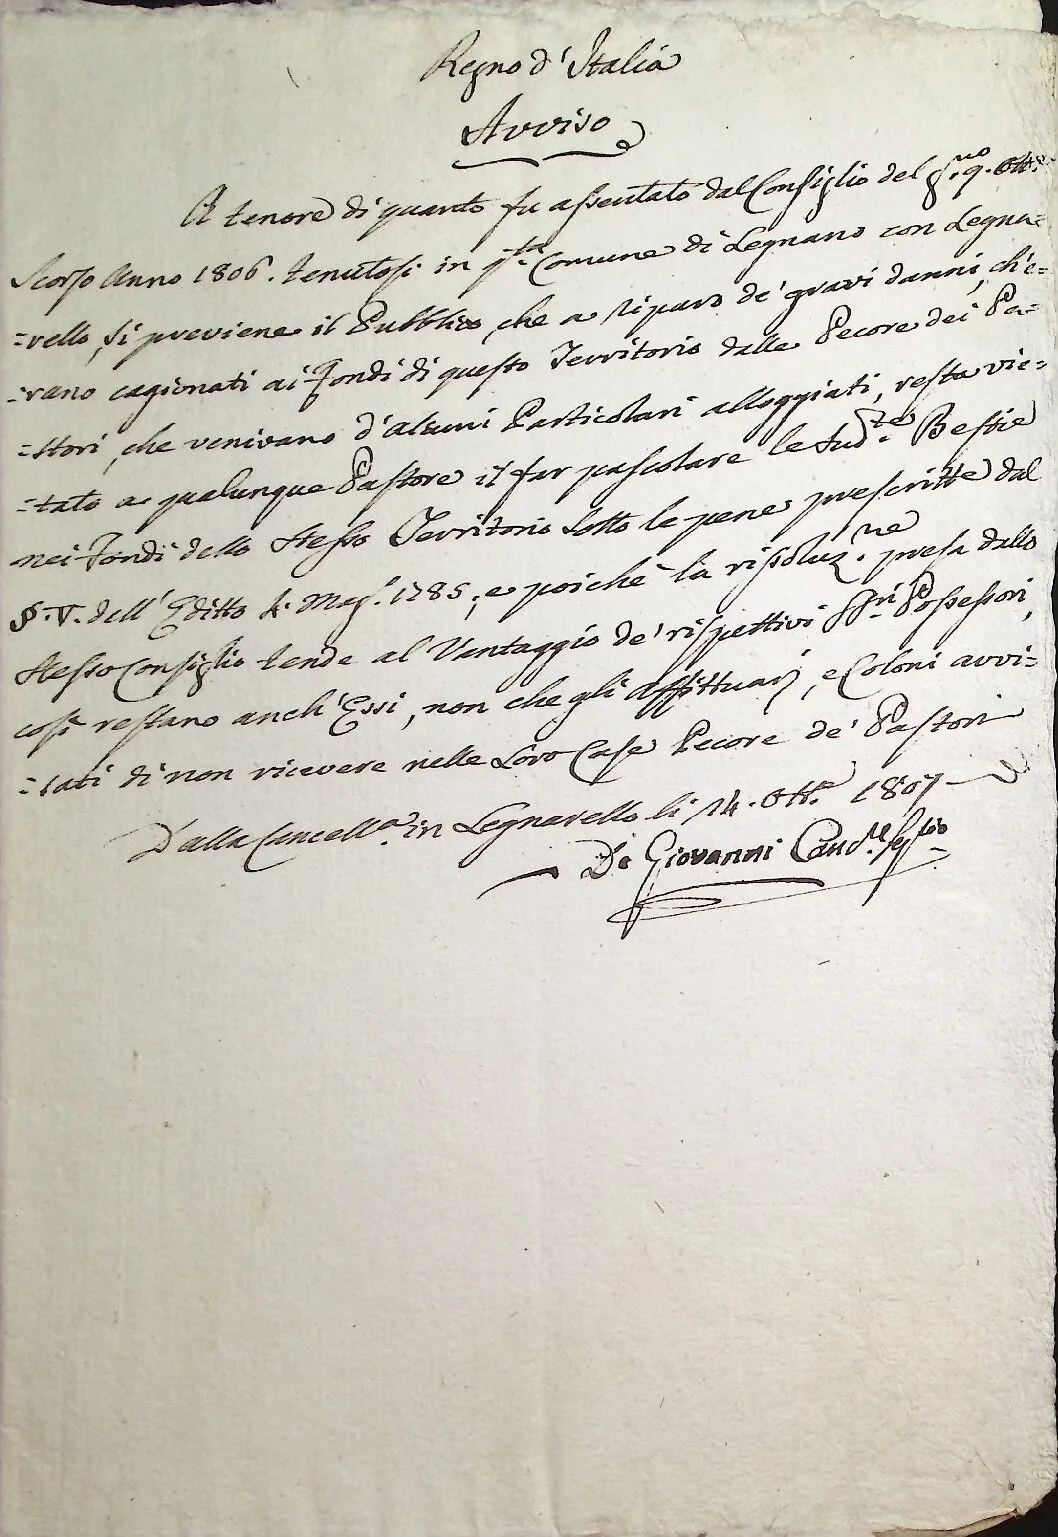 Regno d'Italia
Avviso
A tenore di quanto fu assentato dal Consiglio del g.no 9. Ott.e
Scorso Anno 1806. tenutosi in q.sta Comune di Legnano con Legna=
=rello, si previene il Pubblico, che a riparo de' gravi danni, ch'e=
=rano cagionati ai Fondi di questo Territorio dalle Pecore dei Pa=
=stori, che venivano d'alcuni Particolari alloggiati, resta vie=
=tato a qualunque Pastore il far pascolare le sud.te Bestie
nei Fondi dello stesso Territorio sotto le pene prescritte dal
§. V. dell'Editto 4. Mag.o 1785; e poichè la risoluz.ne presa dallo
stesso Consiglio tende al Vantaggio de' rispettivi SS.ri Possessori,
così restano anch'Essi, non che gli Affittuarj, e Coloni avvi=
=sati di non ricevere nelle Loro Case Pecore de' Pastori
Dalla Cancell.a in Legnarello li 14. Ott.e 1807
De Giovanni Canc.